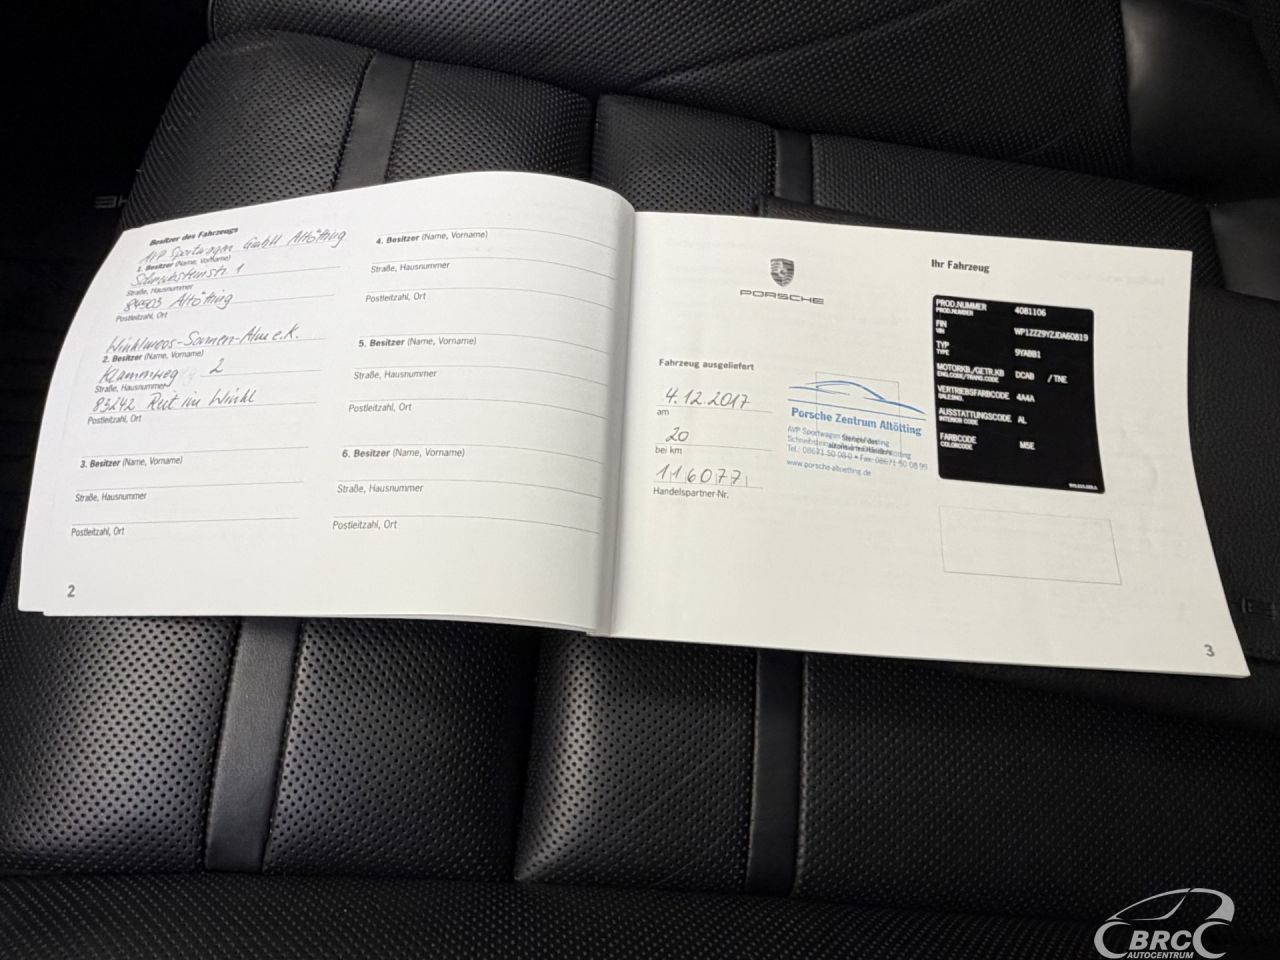 Besitzer des Fahrzeugs
AVP Sportwagen GmbH Altötting
1. Besitzer (Name, Vorname)
1
Straße, Hausnummer
84503 Altötting
Postleitzahl, Ort
Winklmoos-Sonnen-Alm e.K.
2. Besitzer (Name, Vorname)
Klammweg 2
Straße, Hausnummer
83242 Reit im Winkl
Postleitzahl, Ort
3. Besitzer (Name, Vorname)
Straße, Hausnummer
Postleitzahl, Ort
4. Besitzer (Name, Vorname)
Straße, Hausnummer
Postleitzahl, Ort
5. Besitzer (Name, Vorname)
Straße, Hausnummer
Postleitzahl, Ort
6. Besitzer (Name, Vorname)
Straße, Hausnummer
Postleitzahl, Ort
2
PORSCHE
Fahrzeug ausgeliefert
4.12.2017
am
20
bei km
1160771
Handelspartner-Nr.
Porsche Zentrum Altötting
AVP Sportwagen
Stempel des
Tel.: 08671 50 08-0 • Fax: 08671 50 08 99
www.porsche-altoetting.de
Ihr Fahrzeug
PROD.NUMMER 4081106
PROD.NUMBER
FIN WP1ZZZ9YZJDA60819
VIN
TYP 9YABB1
TYPE
MOTORKB./GETR.KB DCAB / TNE
ENG.CODE/TRANS.CODE
VERTRIEBSFARBCODE 4A4A
SALESNO.
AUSSTATTUNGSCODE AL
INTERIOR CODE
FARBCODE M5E
COLORCODE
3
BRC
AUTOCENTRUM